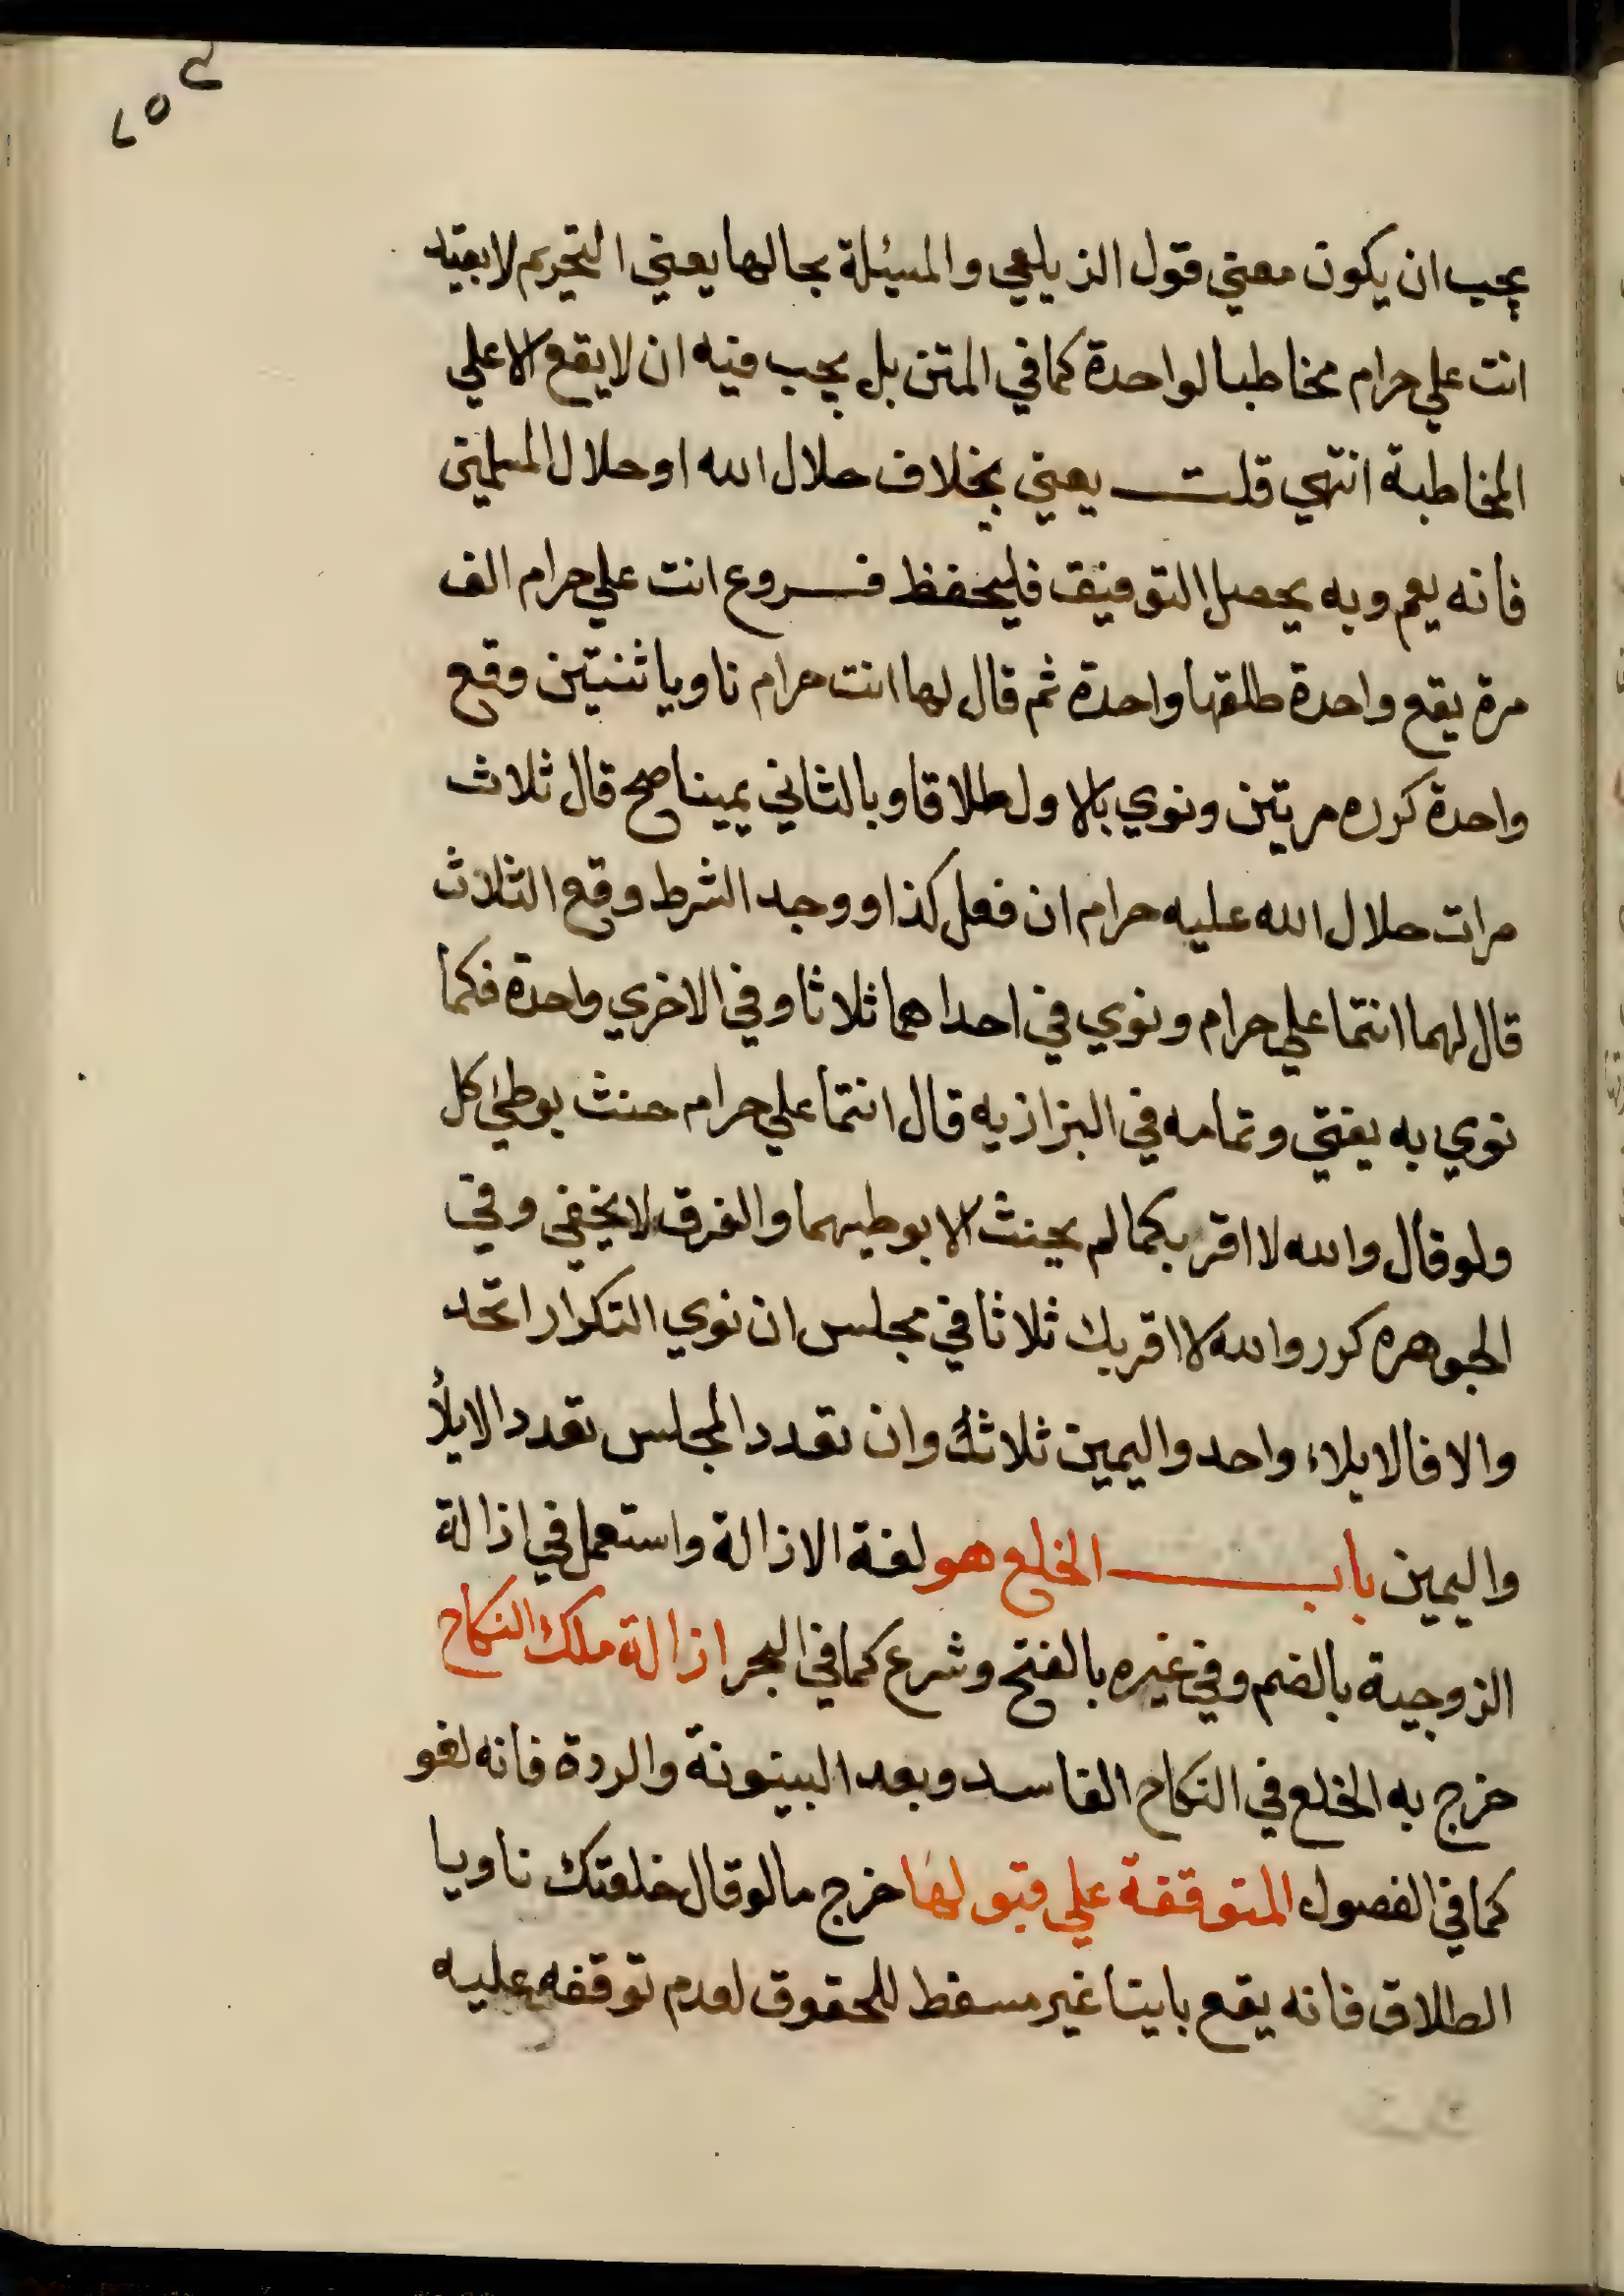 يجب ان يكون معني قول الزيلعي والمسئلة بحالها يعني التحريم لا بقيد
انت علي حرام مخاطبا لواحدة كما في المتن بل يجب فيه ان لا يقع الا علي
المخاطبة انتهي قلت يعني بخلاف حلال الله او حلال المسلمين
فانه يعم وبه يحصل التوفيق فليحفظ فروع انت علي حرام الف
مرة يقع واحدة طلقها واحدة ثم قال لها انت حرام ناويا ثنتين وقع
واحدة كرره مرتين ونوي بالاول طلاقا وبالثاني يمينا صح قال ثلاث
مرات حلال الله عليه حرام ان فعل كذا ووجد الشرط وقع الثلاث
قال لهما انتما علي حرام ونوي في احداهما ثلاثا وفي الاخري واحدة فكما
نوي به يفتي وتمامه في البزازيه قال انتما علي حرام حنث بوطئ كل
ولو قال والله لا اقربكما لم يحنث الا بوطيهما والفرق لا يخفي وفي
الجوهره كرر والله لا اقربك ثلاثا في مجلس ان نوي التكرار اتحد
والا فالايلاء واحد واليمين ثلاث وان تعدد المجلس تعدد الايلأ
واليمين باب الخلع هو لغة الازالة واستعمل في ازالة
الزوجية بالضم وفي غيره بالفتح وشرع كما في البحر ازالة ملك النكاح
خرج به الخلع في النكاح الفاسد وبعد البينونة والردة فانه لغو
كما في الفصول المتوقفة علي قبولها خرج ما لو قال خلعتك ناويا
الطلاق فانه يقع باينا غير مسقط للحقوق لعدم توقفه عليه